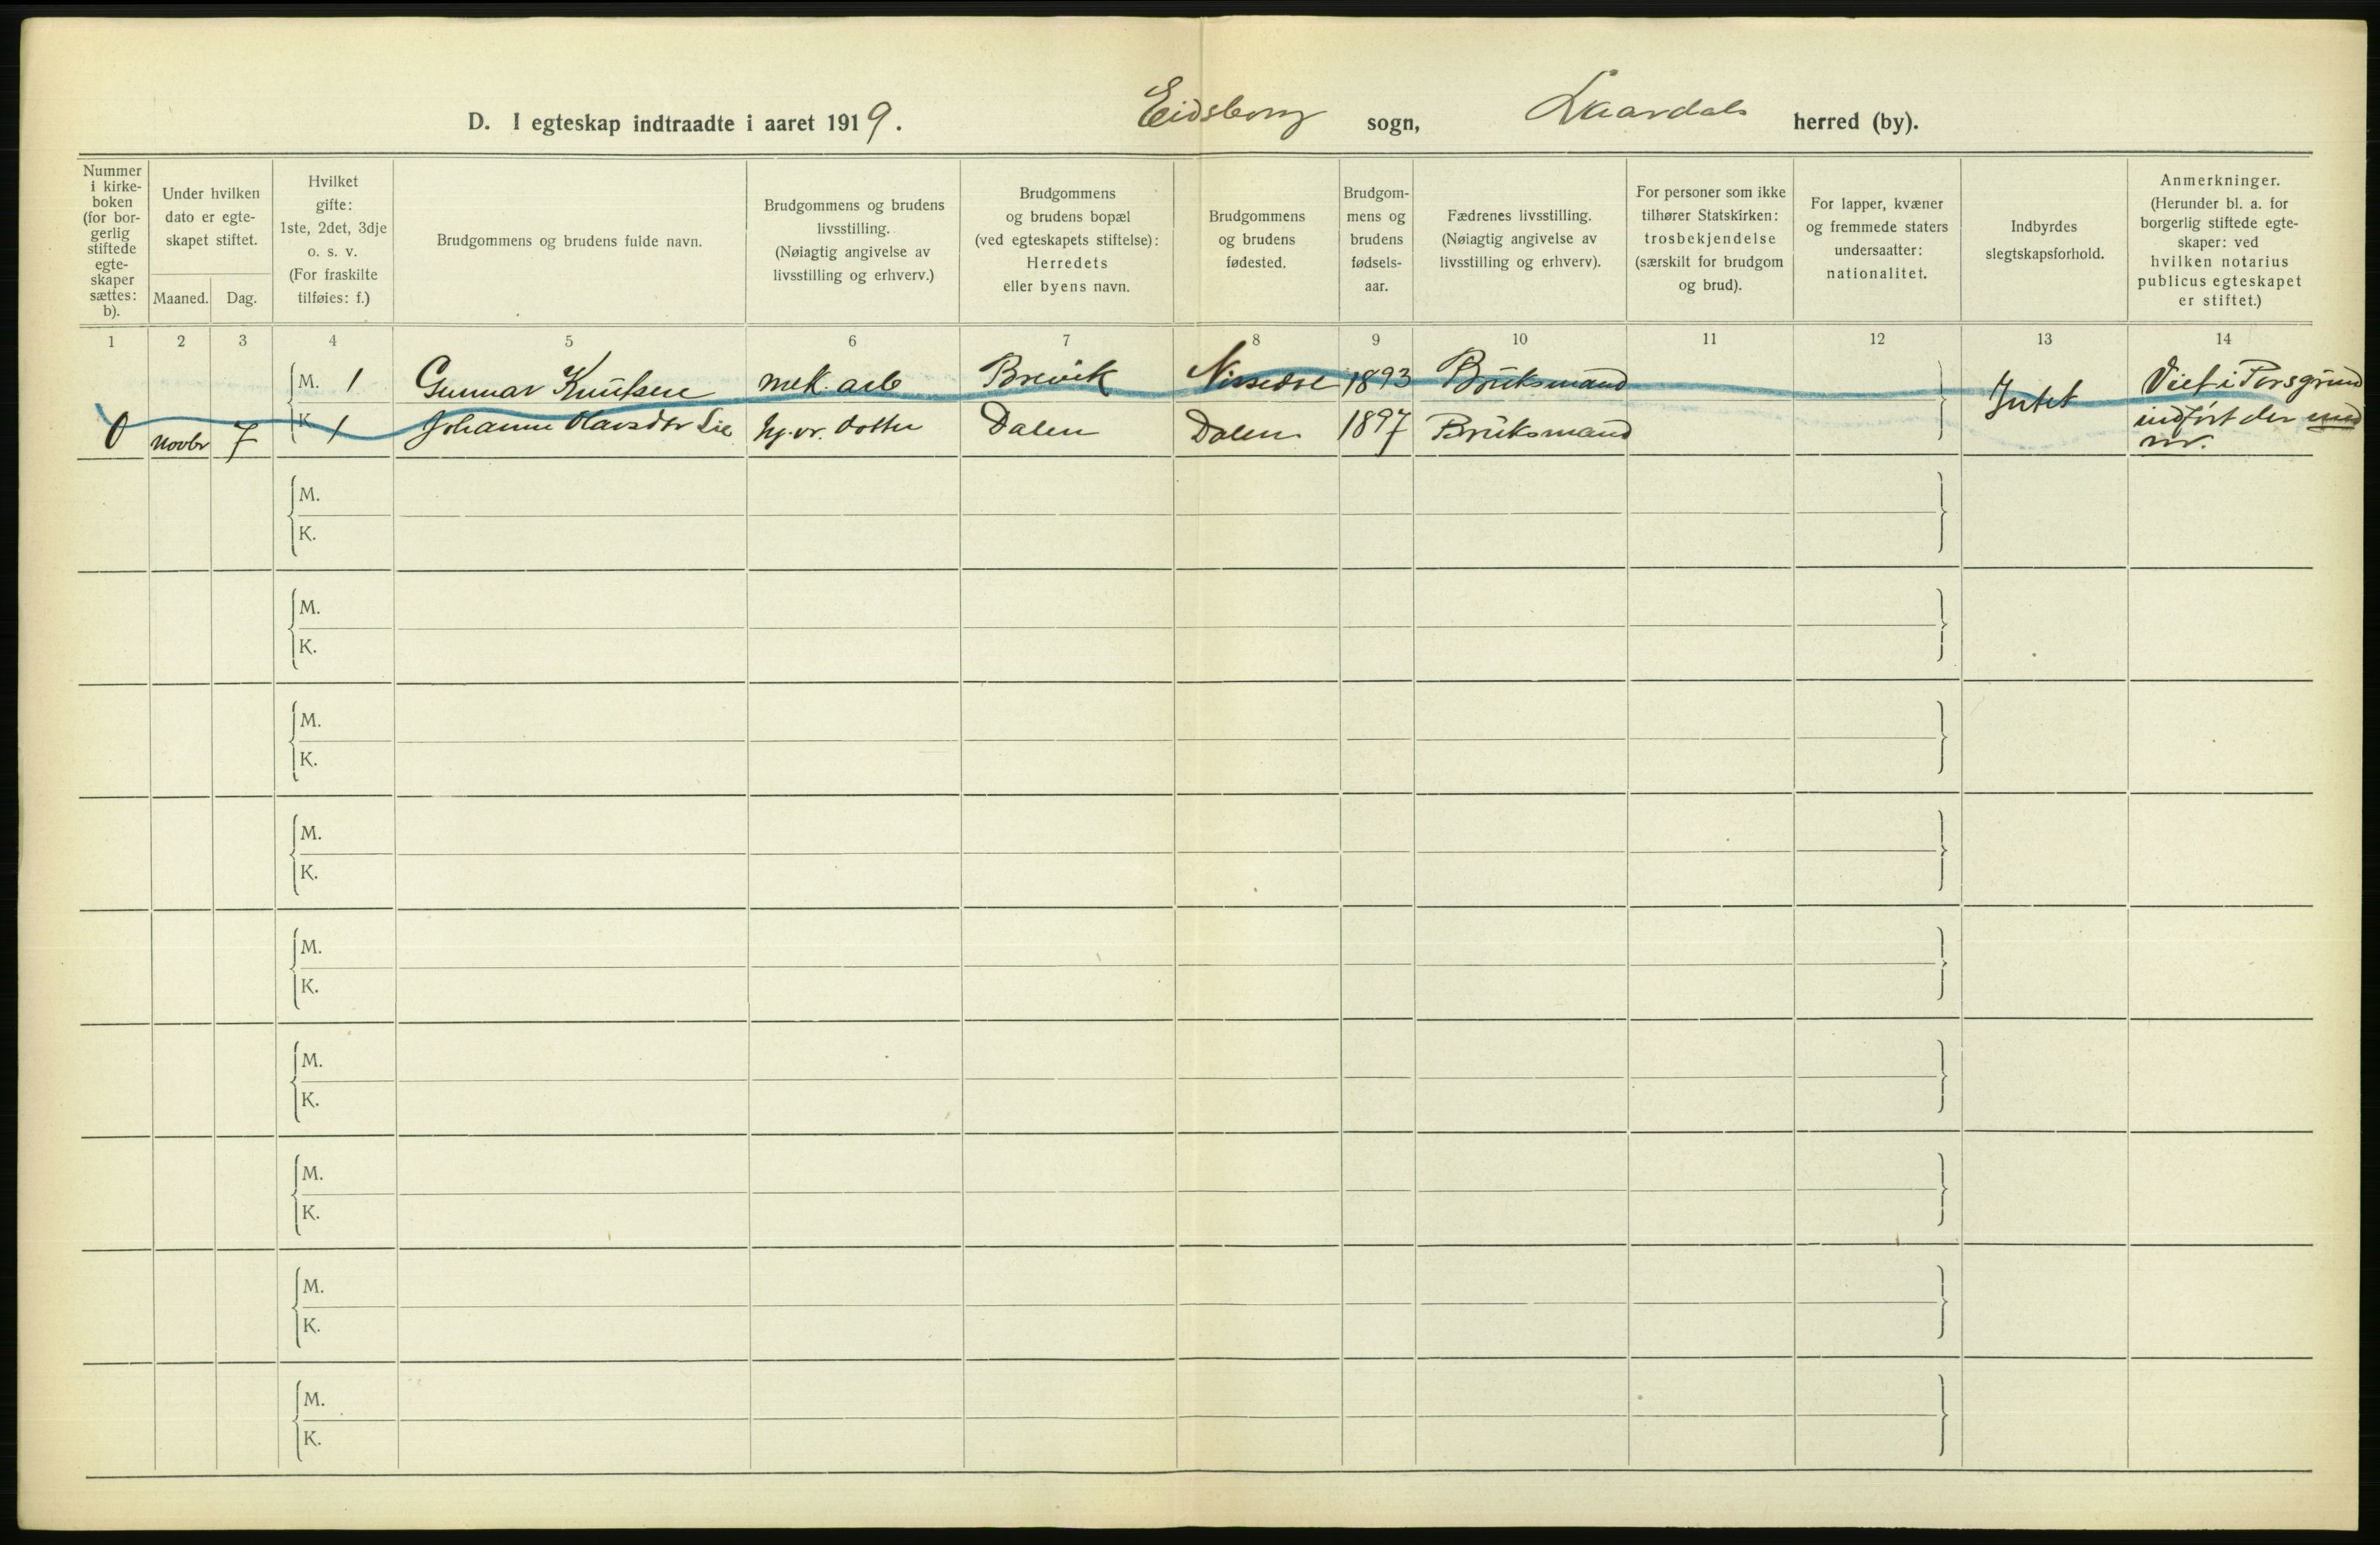 D. I egteskap indtraadte i aaret 1919. Eidsborg sogn, Laardals herred (by).
Nummer
i kirke-
boken
(for bor-
gerlig
stiftede
egte-
skaper
sættes:
b).
Under hvilken
dato er egte-
skapet stiftet.
Maaned. Dag.
Hvilket
gifte:
1ste, 2det, 3dje
o. s. v.
(For fraskilte
tilføies: f.)
Brudgommens og brudens fulde navn.
Brudgommens og brudens
livsstilling.
(Nøiagtig angivelse av
livsstilling og erhverv.)
Brudgommens
og brudens bopæl
(ved egteskapets stiftelse):
Herredets
eller byens navn.
Brudgommens
og brudens
fødested.
Brudgom-
mens og
brudens
fødsels-
aar.
Fædrenes livsstilling.
(Nøiagtig angivelse av
livsstilling og erhverv).
For personer som ikke
tilhører Statskirken:
trosbekjendelse
(særskilt for brudgom
og brud).
For lapper, kvæner
og fremmede staters
undersaatter:
nationalitet.
Indbyrdes
slegtskapsforhold.
Anmerkninger.
(Herunder bl. a. for
borgerlig stiftede egte-
skaper: ved
hvilken notarius
publicus egteskapet
er stiftet.)
1 2 3 4 5 6 7 8 9 10 11 12 13 14
M. 1 Gunnar Knutsen mek. arb Brevik Nissedal 1893 Bruksmand
0 Novbr 7 K. 1 Johanne Olavsdtr Lie hj. vr. dotter Dalen Dalen 1897 Bruksmand
Intet
Viet i Porsgrund
indført der med
nr.
M.
K.
M.
K.
M.
K.
M.
K.
M.
K.
M.
K.
M.
K.
M.
K.
M.
K.